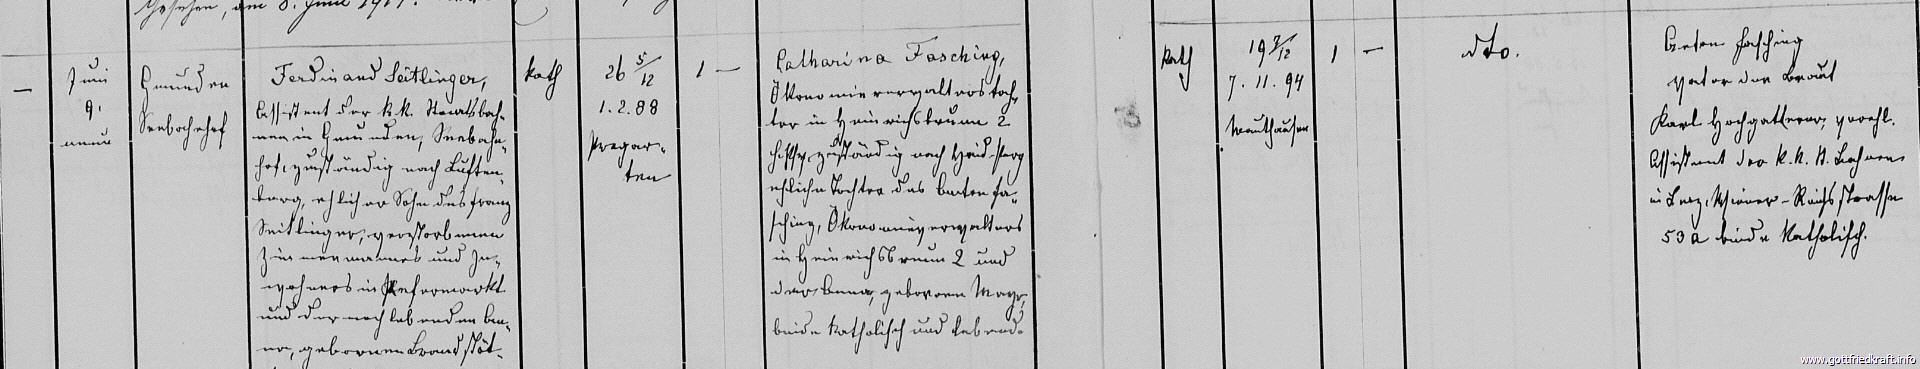 Gesehen, am 8. Juni 1914.
Juni
9.
neun
Gmunden
Seebahnhof
Ferdinand Seitlinger,
Assistent der k.k. Staatsbah-
nen in Gmunden, Seebahn-
hof, zuständig nach Luften-
berg, ehlicher Sohn des Franz
Seitlinger, verstorbenen
Zimmermannes und In-
wohners in Kefermarkt
und der noch lebenden An-
na, gebornen Brandstöt-
kath
26 5/12
1.2.88
Pregar-
ten
1 —
Catharina Fasching,
Ökonomieverwalterstoch-
ter in Heinrichsbrunn 2
zuständig nach Haid Perg
ehliche Tochter des Anton Fa-
sching, Ökonomieverwalters
in Heinrichsbrunn 2 und
der Anna, geboren Mayr,
beide katholisch und lebend.
kath
19 7/12
7.11.94
Mauthausen
1 —
dto.
Anton Fasching
Vater der Braut
Karl Hochgatterer, verehl.
Assistent der k.k. St. Bahnen
in Linz, Wiener-Reichsstrasse
53a beide katholisch.
www.gottfriedkraft.info